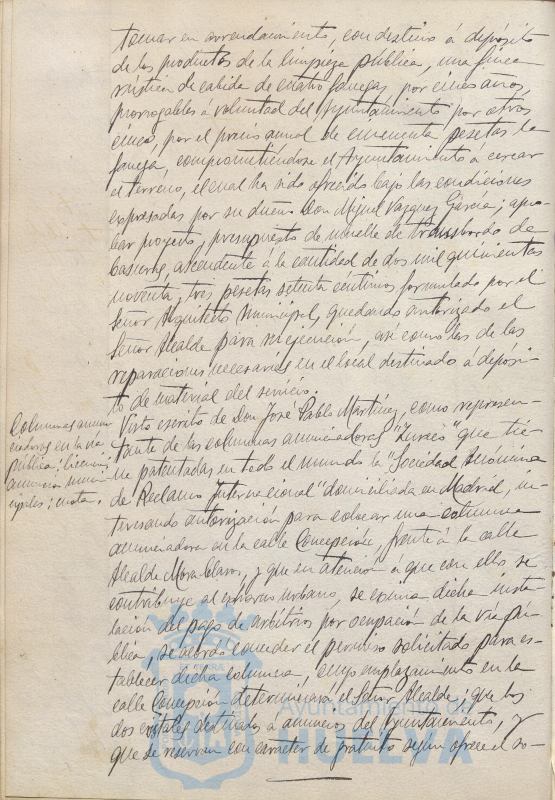 tomar en arrendamiento, con destino á depósito
de los productos de la limpieza pública, una finca
rústica de cabida de cuatro fanegas, por cinco años,
prorrogables á voluntad del Ayuntamiento por otros
cinco, por el precio anual de cincuenta pesetas la
fanega, comprometiéndose el Ayuntamiento á cercar
el terreno, el cual ha sido ofrecido bajo las condiciones
expresadas por su dueño Don Miguel Vazquez Garcia; apro-
bar proyecto, presupuesto de muelle de transbordo de
basuras, ascendente á la cantidad de dos mil quinientas
noventa y tres pesetas setenta centimos formulado por el
Señor Arquitecto Municipal, quedando autorizado el
Señor Alcalde para su ejecución, así como las de las
reparaciones necesarias en el local destinado á deposi-
to de material del servicio.
Columnas anun-
ciadoras en la via
pública; licencia
anuncios muni-
cipales;
Visto escrito de Don José Pablo Martínez, como represen-
tante de las columnas anunciadoras que tie-
ne patentadas en todo el mundo la "Sociedad Anónima
de Reclamo Internacional" domiciliada en Madrid, in-
teresando autorización para colocar una columna
anunciadora en la calle Concepción, frente á la calle
Alcalde Mora Claros, y que en atención a que con ello se
contribuye al ornato urbano, se exima dicha insta-
lación del pago de arbitrios por ocupación de la vía pú-
blica, se acordó conceder el permiso solicitado para es-
tablecer dicha columna, cuyo emplazamiento en la
calle Concepción determinará el Señor Alcalde; que los
dos cristales destinados á anuncios del Ayuntamiento, y
que se reservan con caracter de gratuito según ofrece el so-
Ayuntamiento de
HUELVA